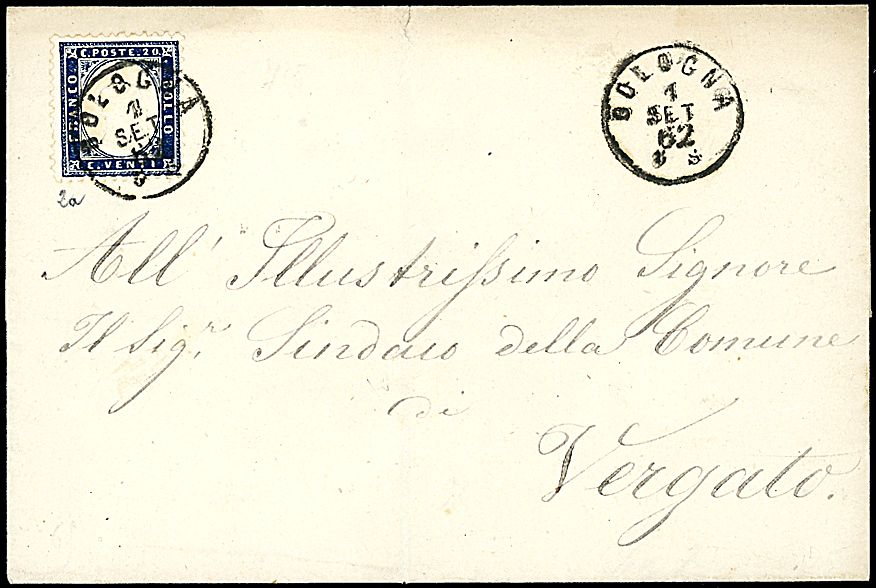 C. POSTE. 20.
FRANCO
BOLLO
C. VENTI
BOLOGNA
1
SET
BOLOGNA
1
SET
62
2a
All' Illustrissimo Signore
Il Sigr. Sindaco della Comune
di
Vergato.